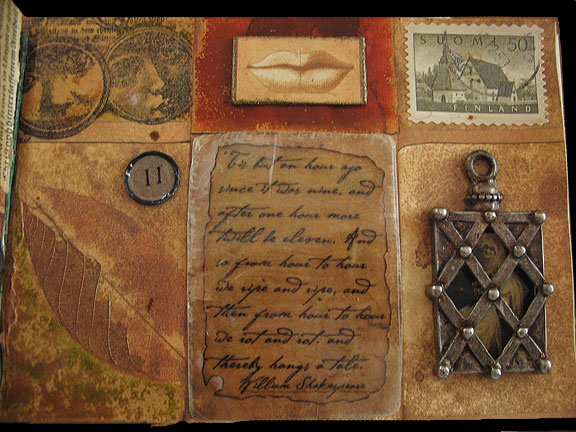 SUOMI 50
FINLAND
11
'Tis but an hour ago
since it was nine, and
after one hour more
twill be eleven. And
so from hour to hour
we ripe and ripe, and
then from hour to hour
we rot and rot. and
thereby hangs a tale.
William Shakespeare